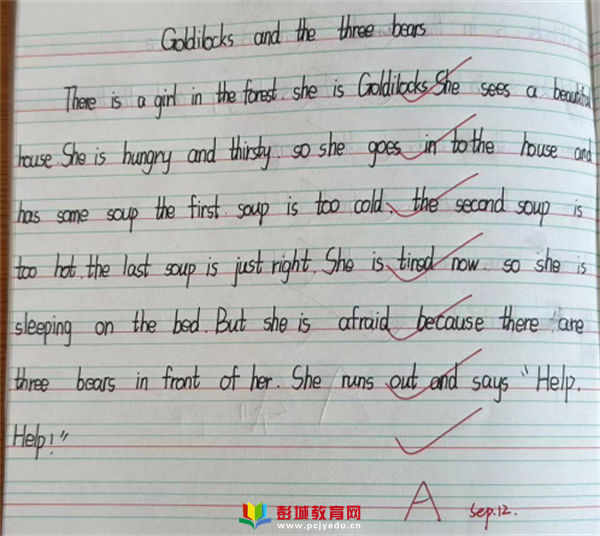 Goldilocks and the three bears
There is a girl in the forest. she is Goldilocks She sees a beautiful
house. She is hungry and thirsty. so she goes in to the house and
has some soup the first. soup is too cold, the second soup is
too hot. the last soup is just right. She is tired now. so she is
sleeping on the bed. But she is afraid because there are
three bears in front of her. She runs out and says "Help.
Help!"
A Sep.12.
彭城教育网
www.pcjyedu.cn